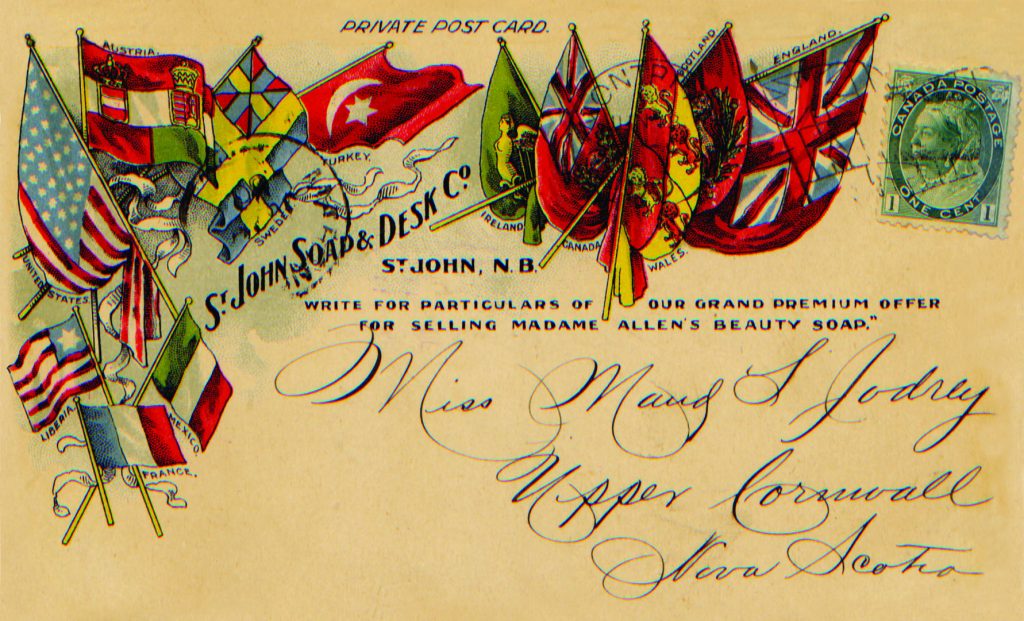 PRIVATE POST CARD.
AUSTRIA.
TURKEY.
SWEDEN
IRELAND
CANADA
WALES.
SCOTLAND
ENGLAND.
UNITED STATES.
LIBERIA.
MEXICO
FRANCE.
CANADA POSTAGE
1 ONE CENT 1
ST JOHN SOAP & DESK CO
ST JOHN, N.B.
WRITE FOR PARTICULARS OF OUR GRAND PREMIUM OFFER
FOR SELLING MADAME ALLEN'S BEAUTY SOAP."
Miss Maud S Jodrey
Upper Cornwall
Nova Scotia